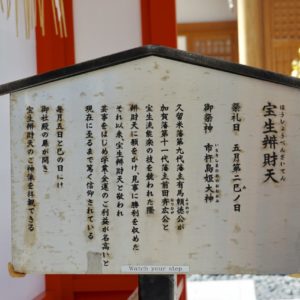 ほうしょうべんざいてん
宝生辨財天
祭礼日 五月第二巳ノ日
いちきしまひめのおおかみ
御祭神 市杵島姫大神
久留米藩第九代藩主有馬頼徳公が
加賀藩第十一代藩主前田斉広公と
宝生流能楽の技を競われた際
辨財天に願をかけ、見事に勝利を収めた
それ以来、宝生辨財天と敬われ
芸事をはじめ学業・金運のご利益が名高いと
現在に至るまで篤く信仰されている
毎月五日と巳の日にけ
御社殿の扉が開き
宝生辨財天のご神像を拝観できる
Watch your step.